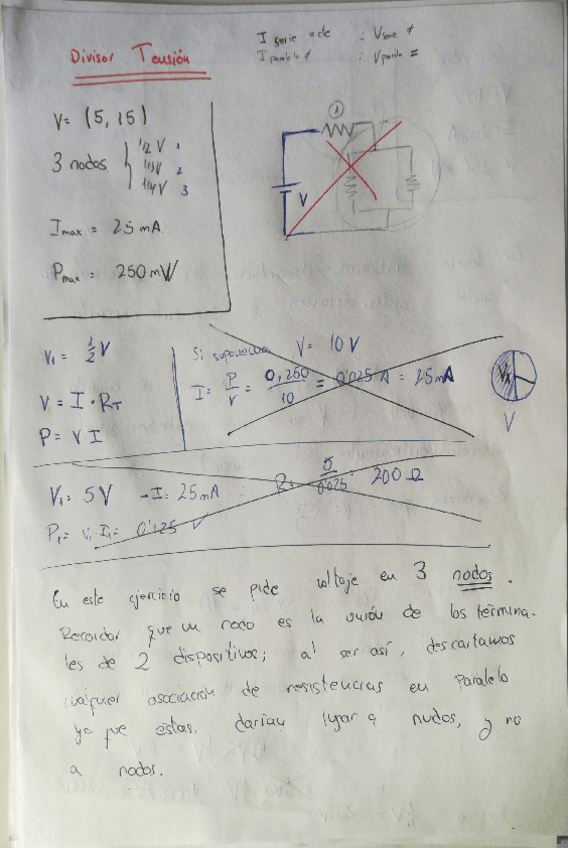 Divisor Tensión
I serie = cte : V serie ≠
I paralelo ≠ : V paralelo =
V = (5, 15)
3 nodos
1/2 V 1
1/3 V 2
1/4 V 3
I max = 25 mA
P max = 250 mW
1
V
V1 = 1/2 V
V = I · RT
P = V I
Si suponemos V = 10 V
I = P/V = 0,250/10 = 0'025 A = 25 mA
V1
V
V1 = 5 V → I = 25 mA : R = 5/0'025 = 200 Ω
P1 = V1 · I1 = 0'125 ✓
En este ejercicio se pide voltaje en 3 nodos.
Recordar que un nodo es la unión de los termina-
les de 2 dispositivos; al ser así, descartamos
cualquier asociación de resistencias en paralelo
ya que estas darían lugar a nudos, y no
a nodos.